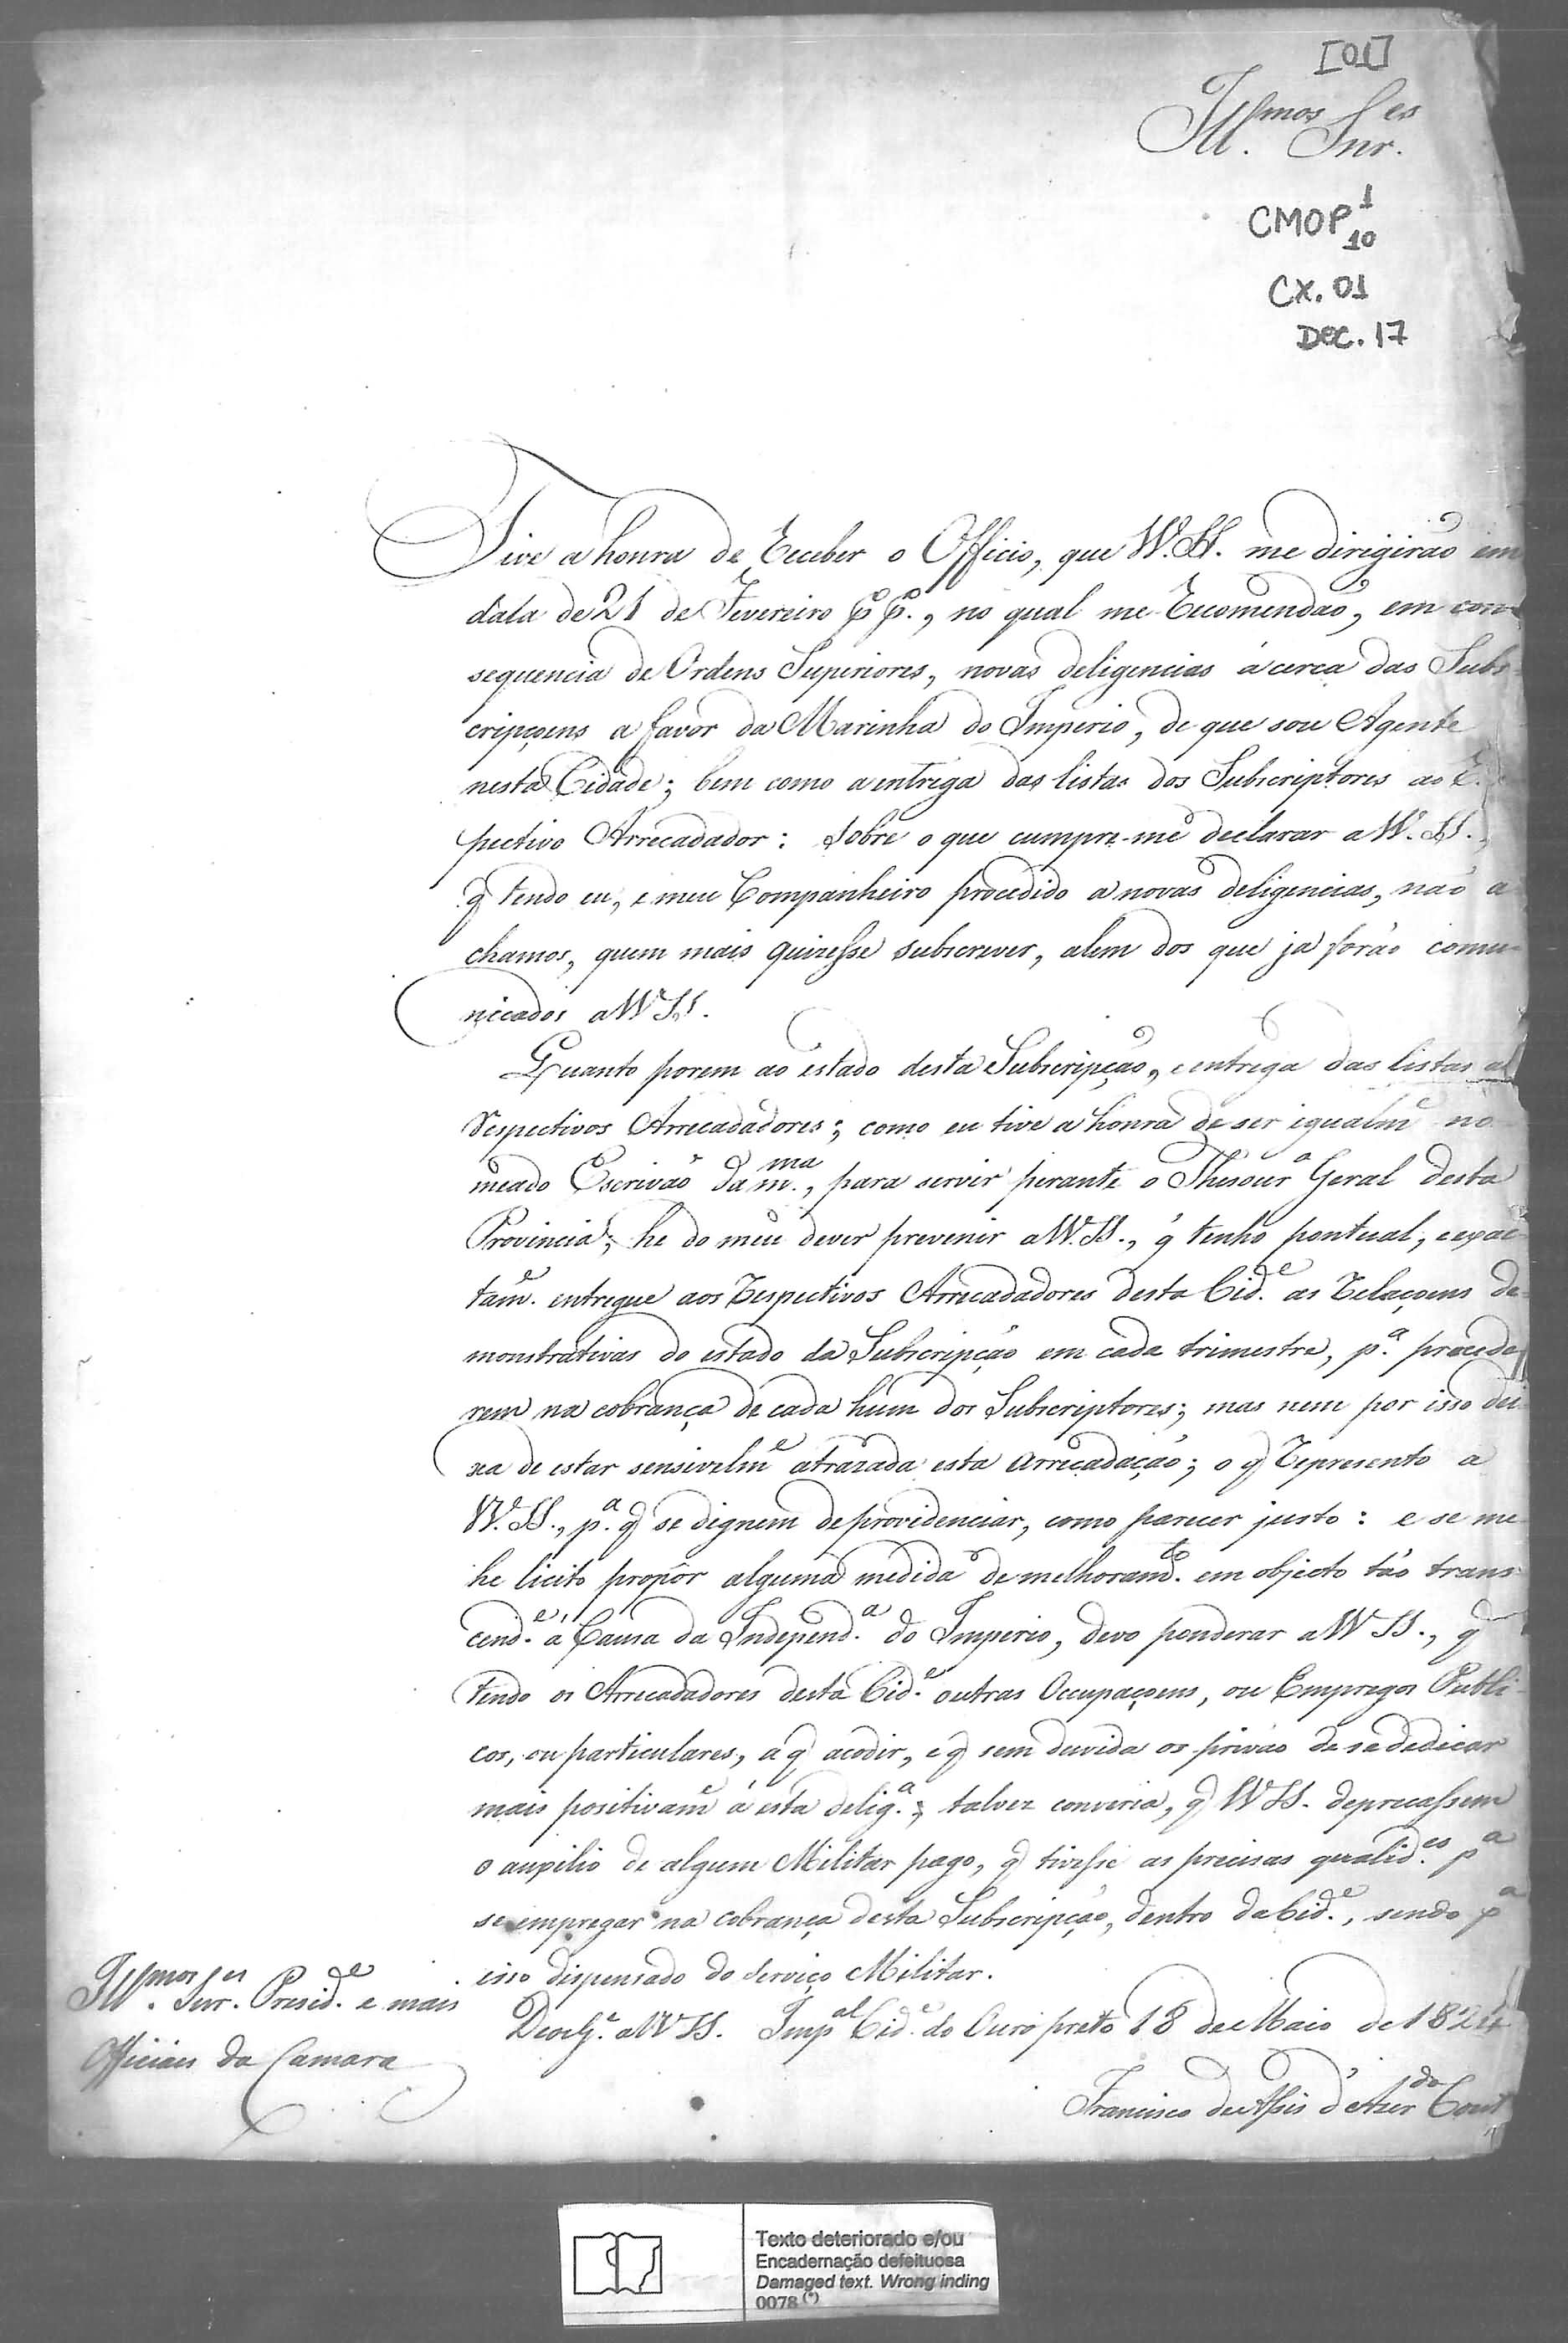 [01]
Ill.mos Snr.es
CMOP 1
10
CX. 01
DOC. 17
Tive a honra de Receber o Officio, que VV. SS. me dirigirão em
data de 21 de Fevereiro p.o p.o, no qual me Recomendão, em con-
sequencia de Ordens Superiores, novas deligencias ácerca das Subs-
cripçoens a favor da Marinha do Imperio, de que sou Agente
nesta Cidade; bem como a entrega das listas dos Subscriptores ao Res-
pectivo Arrecadador: sobre o que cumpre-me declarar a VV. SS.,
q̃ tendo eu, e meu Companheiro procedido a novas deligencias, não a
chamos, quem mais quizesse subscrever, alem dos que já forão comu-
nicados a VV SS.
Quanto porem ao estado desta Subscripção, e entrega das listas a
Respectivos Arrecadadores; como eu tive a honra de ser igualm.e no-
meado Escrivão da m.ma, para servir perante o Thesour.a Geral desta
Provincia; he do meu dever prevenir a VV. SS., q̃ tenho pontual, e exac-
tam.e entregue aos Respectivos Arrecadadores desta Cid.e as Relaçoens de-
monstrativas do estado da Subscripção em cada trimestre, p.a procede-
rem na cobrança de cada hum dos Subscriptores; mas nem por isso dei-
xa de estar sensivelm.e atrazada esta arrecadação; o q̃ Represento a
VV. SS., p.a q̃ se dignem de providenciar, como parecer justo: e se me
he licito propôr alguma medida de melhoram.to em objecto tão trans-
cend.e á Causa da Independ.a do Imperio, devo ponderar a VV SS., q̃
tendo os Arrecadadores desta Cid.e outras Occupaçoens, ou Empregos Publi-
cos, ou particulares, a q̃ acodir, e q̃ sem duvida os privão de se dedicar
mais positivam.e á esta delig.a; talvez conviria, q̃ VV SS. deprecassem
o auxilio de algum Militar pago, q̃ tivesse as precisas qualid.es p.a
se empregar na cobrança desta Subscripção, dentro da Cid.e, sendo p.a
isso dispensado do Serviço Militar.
Deos G.e a VV SS. Imp.al Cid.e do Ouro preto 18 de Maio de 1824
Francisco de Assis d'Azer.do Cout
Ill.mos Snr.es Presid.e e mais
Officiaes da Camara
Texto deteriorado e/ou
Encadernação defeituosa
Damaged text. Wrong inding
0078 (*)